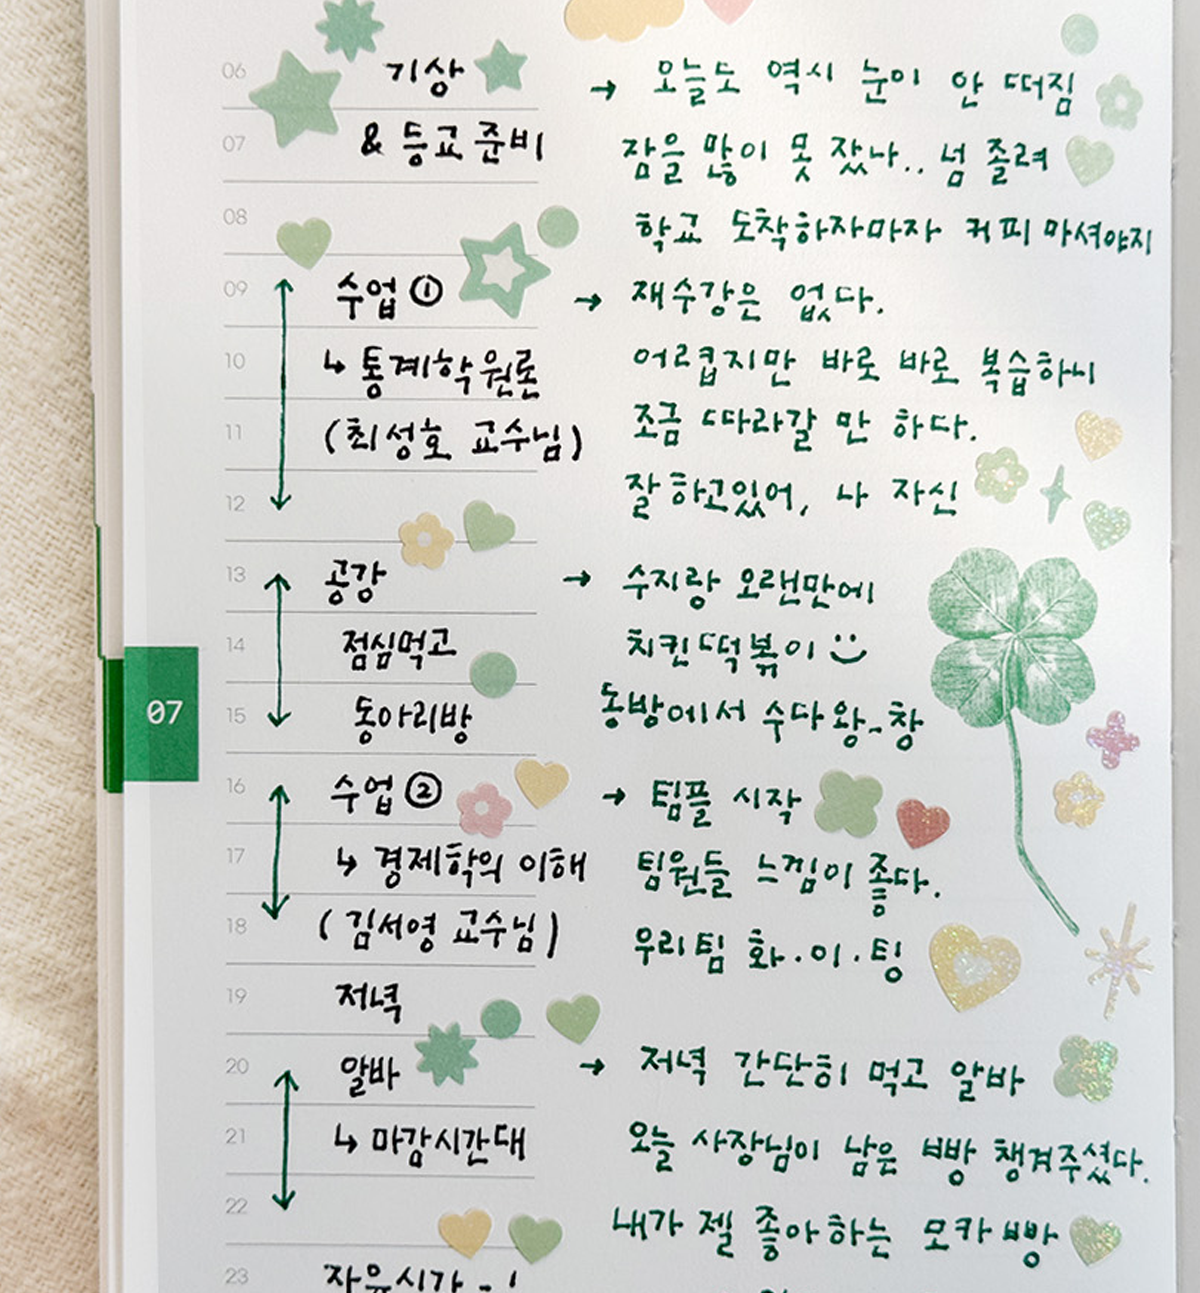 06 기상 → 오늘도 역시 눈이 안 떠짐
07 & 등교 준비 잠을 많이 못 잤나.. 넘 졸려
08 학교 도착하자마자 커피 마셔야지
09 수업 ① → 재수강은 없다.
10 ↳ 통계학원론 어려웁지만 바로 바로 복습하니
11 (최성호 교수님) 조금 따라갈 만 하다.
12 잘하고있어, 나 자신
13 공강 → 수지랑 오랜만에
14 점심먹고 치킨떡볶이
07
15 동아리방 동방에서 수다 왕-창
16 수업 ② → 팀플 시작
17 ↳ 경제학의 이해 팀원들 느낌이 좋다.
18 (김서영 교수님) 우리팀 화.이.팅
19 저녁
20 알바 → 저녁 간단히 먹고 알바
21 ↳ 마감시간대 오늘 사장님이 남은 빵 챙겨주셨다.
22 내가 젤 좋아하는 모카빵
23 자유시간